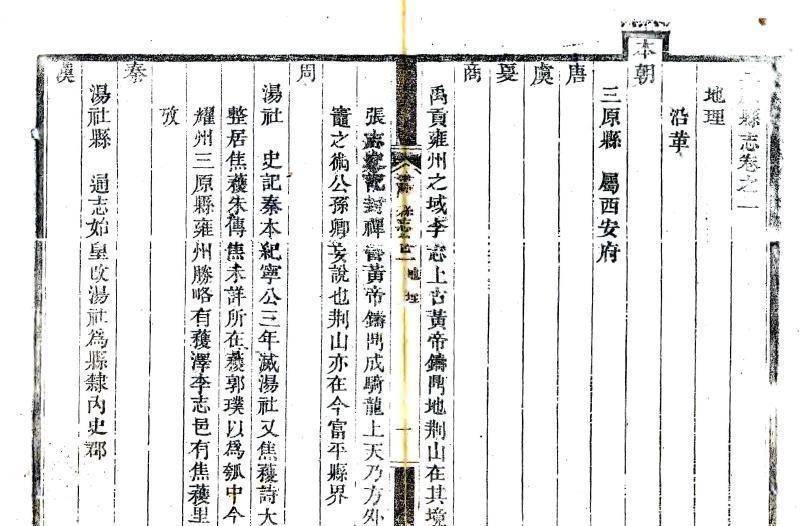 縣志卷之一
地理
沿革
本朝
三原縣 屬西安府
唐
虞
夏
商
禹貢雍州之域李志上古黃帝鑄鼎地荆山在其境
縣志卷一 地理 一
張志史記封禪書黃帝鑄鼎成騎龍上天乃方外
竈之術公孫卿妄說也荆山亦在今富平縣界
周
湯社 史記秦本紀寧公三年滅湯社又焦穫詩大
整居焦穫朱傳焦未詳所在穫郭璞以爲瓠中今
耀州三原縣雍州勝略有穫澤李志邑有焦穫里
攷
秦
湯社縣 通志始皇改湯社爲縣隸內史郡
漢